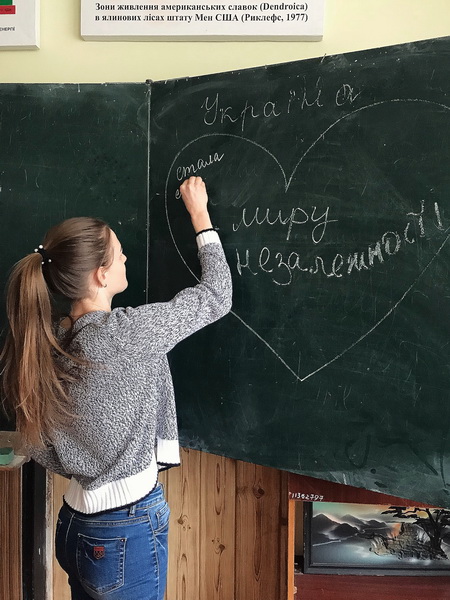 Зони живлення американських славок (Dendroica)
в ялинових лісах штату Мен США (Риклефс, 1977)
Україна
стала
миру
незалежності